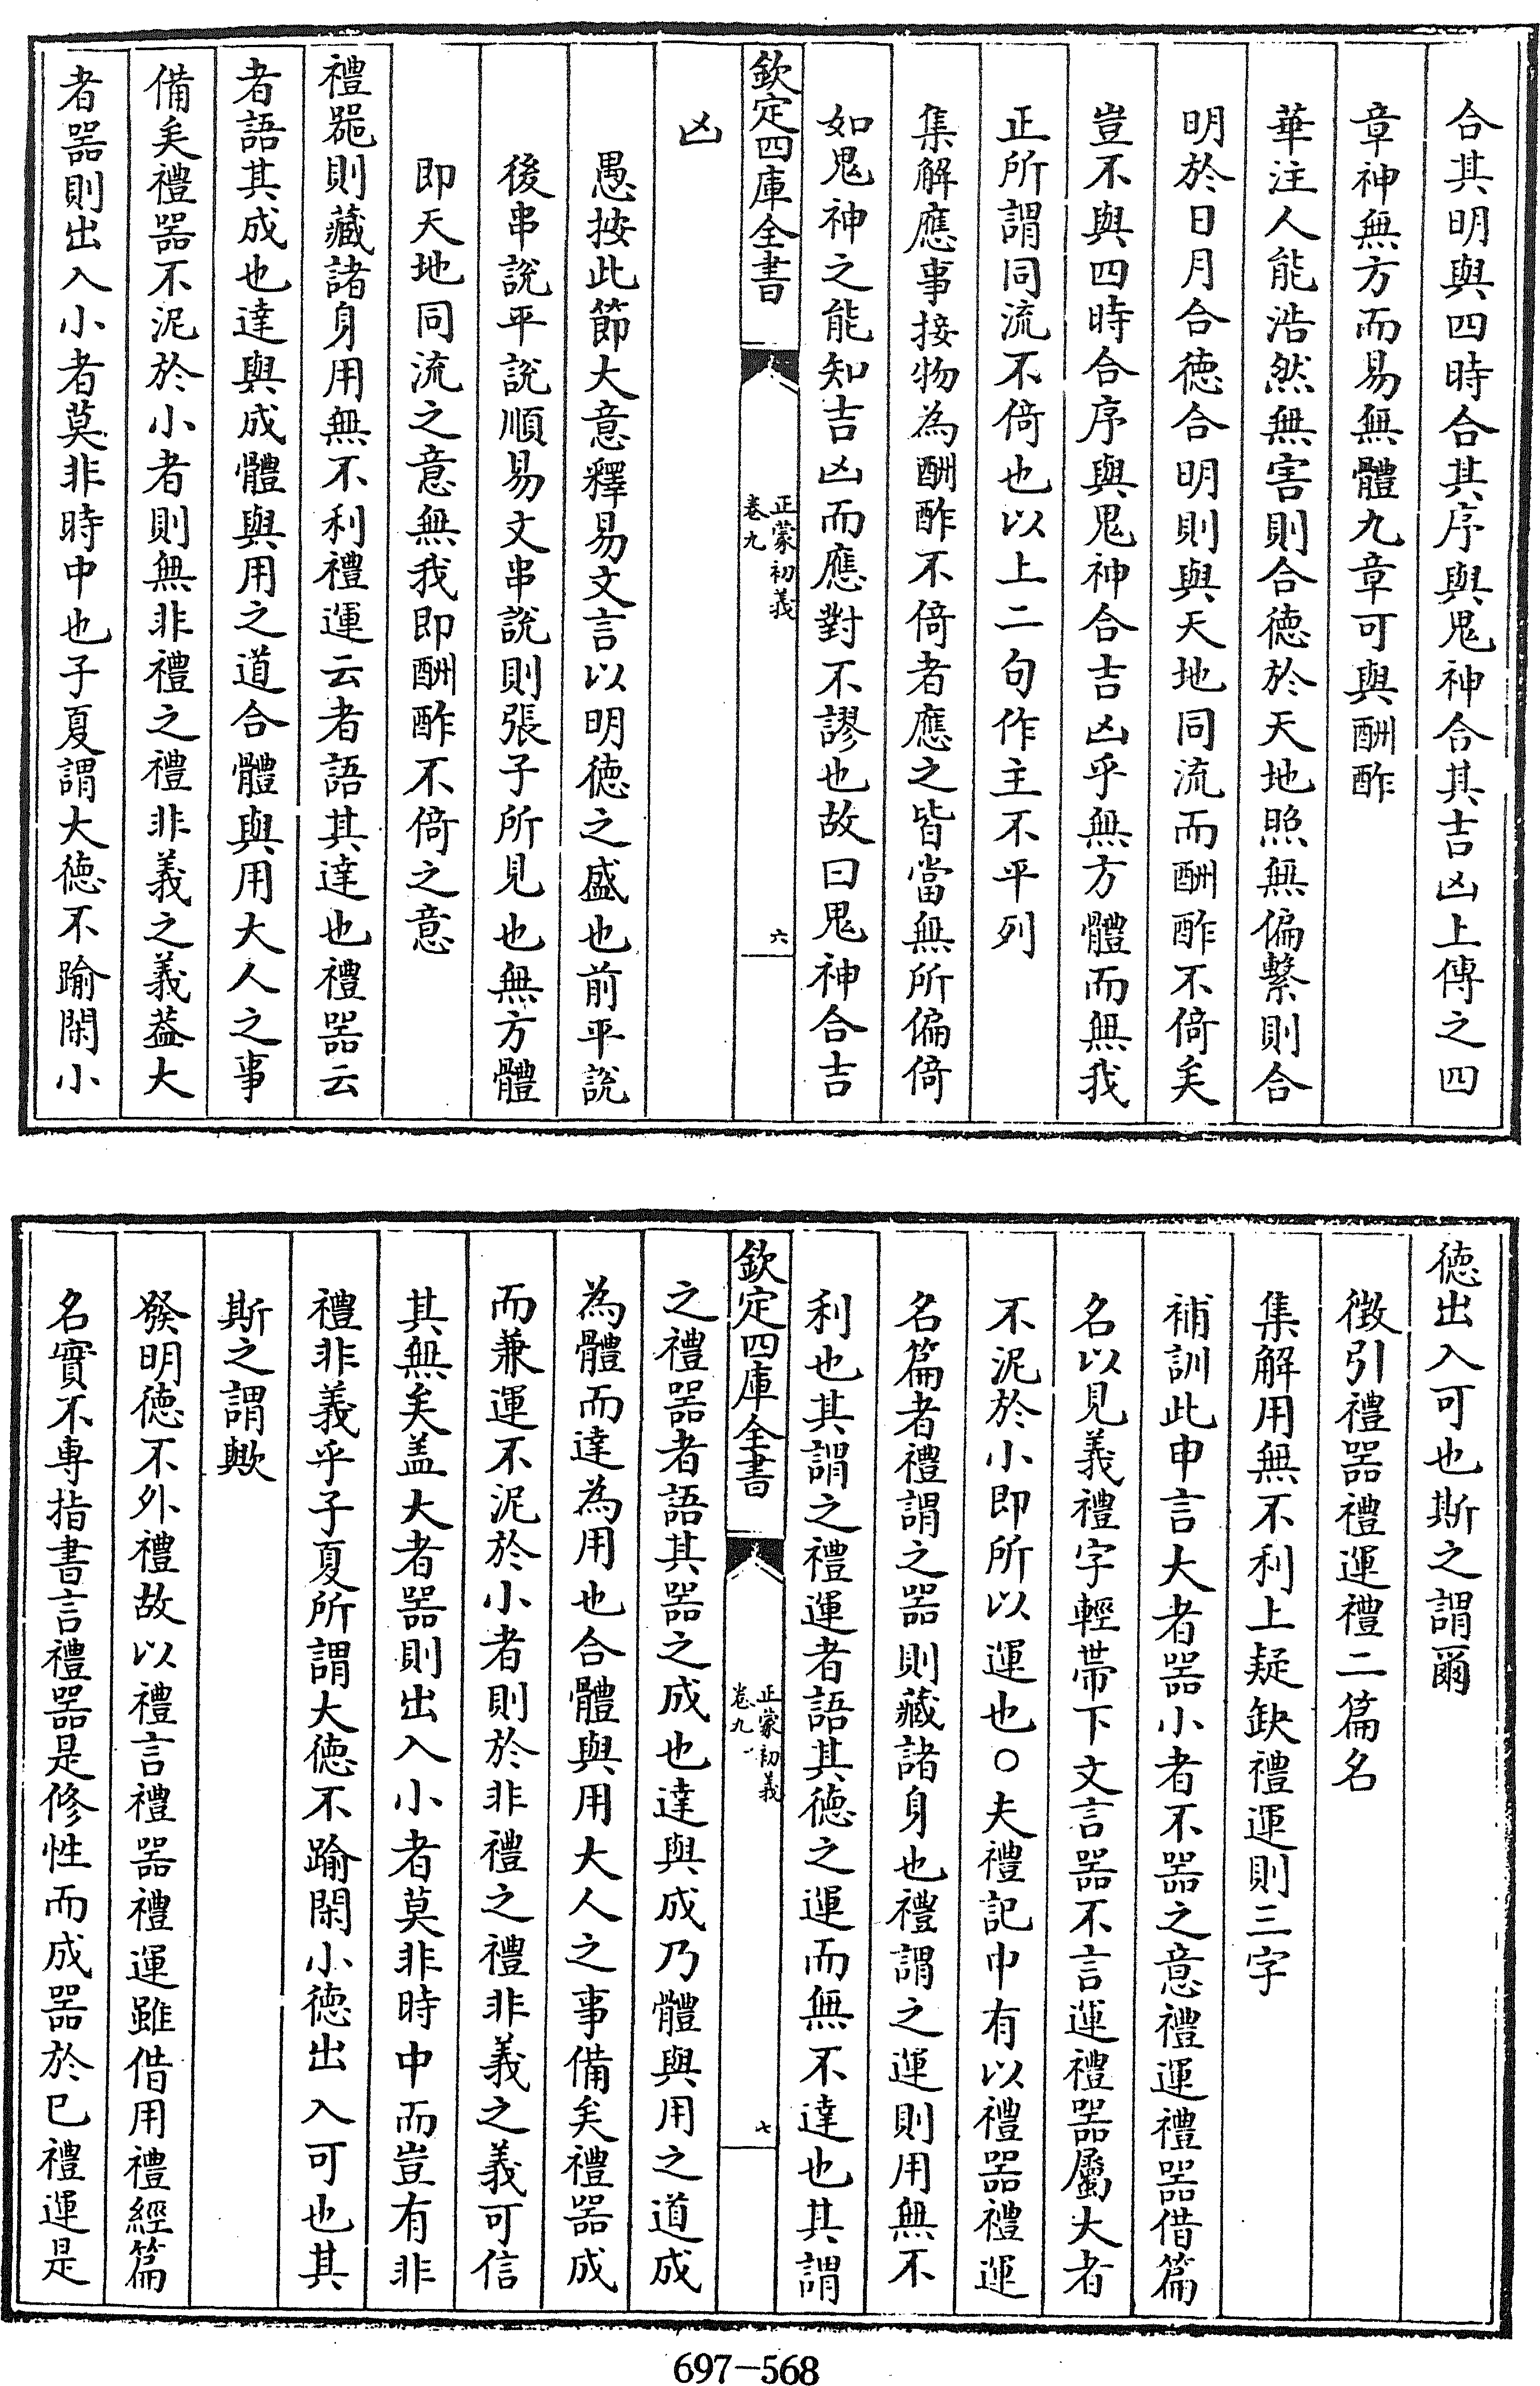 合其明與四時合其序與鬼神合其吉凶上傳之四
章神無方而易無體九章可與酬酢
華注人能浩然無害則合德於天地照無偏繫則合
明於日月合德合明則與天地同流而酬酢不倚矣
豈不與四時合序與鬼神合吉凶乎無方體而無我
正所謂同流不倚也以上二句作主不平列
集解應事接物為酬酢不倚者應之皆當無所偏倚
如鬼神之能知吉凶而應對不謬也故曰鬼神合吉
欽定四庫全書
正蒙初義
卷九
六
凶
愚按此節大意釋易文言以明德之盛也前平說
後串說平說順易文串說則張子所見也無方體
即天地同流之意無我即酬酢不倚之意
禮噐則藏諸身用無不利禮運云者語其達也禮器云
者語其成也達與成體與用之道合體與用大人之事
備矣禮器不泥於小者則無非禮之禮非義之義葢大
者器則出入小者莫非時中也子夏謂大德不踰閑小
德出入可也斯之謂爾
徴引禮器禮運禮二篇名
集解用無不利上疑缺禮運則三字
補訓此申言大者器小者不器之意禮運禮器借篇
名以見義禮字輕帶下文言器不言運禮器屬大者
不泥於小即所以運也○夫禮記中有以禮器禮運
名篇者禮謂之器則藏諸身也禮謂之運則用無不
利也其謂之禮運者語其德之運而無不達也其謂
欽定四庫全書
正蒙初義
卷九
七
之禮器者語其器之成也達與成乃體與用之道成
為體而達為用也合體與用大人之事備矣禮器成
而兼運不泥於小者則於非禮之禮非義之義可信
其無矣盖大者器則出入小者莫非時中而豈有非
禮非義乎子夏所謂大德不踰閑小德出入可也其
斯之謂歟
發明德不外禮故以禮言禮器禮運雖借用禮經篇
名實不專指書言禮器是修性而成器於已禮運是
697-568